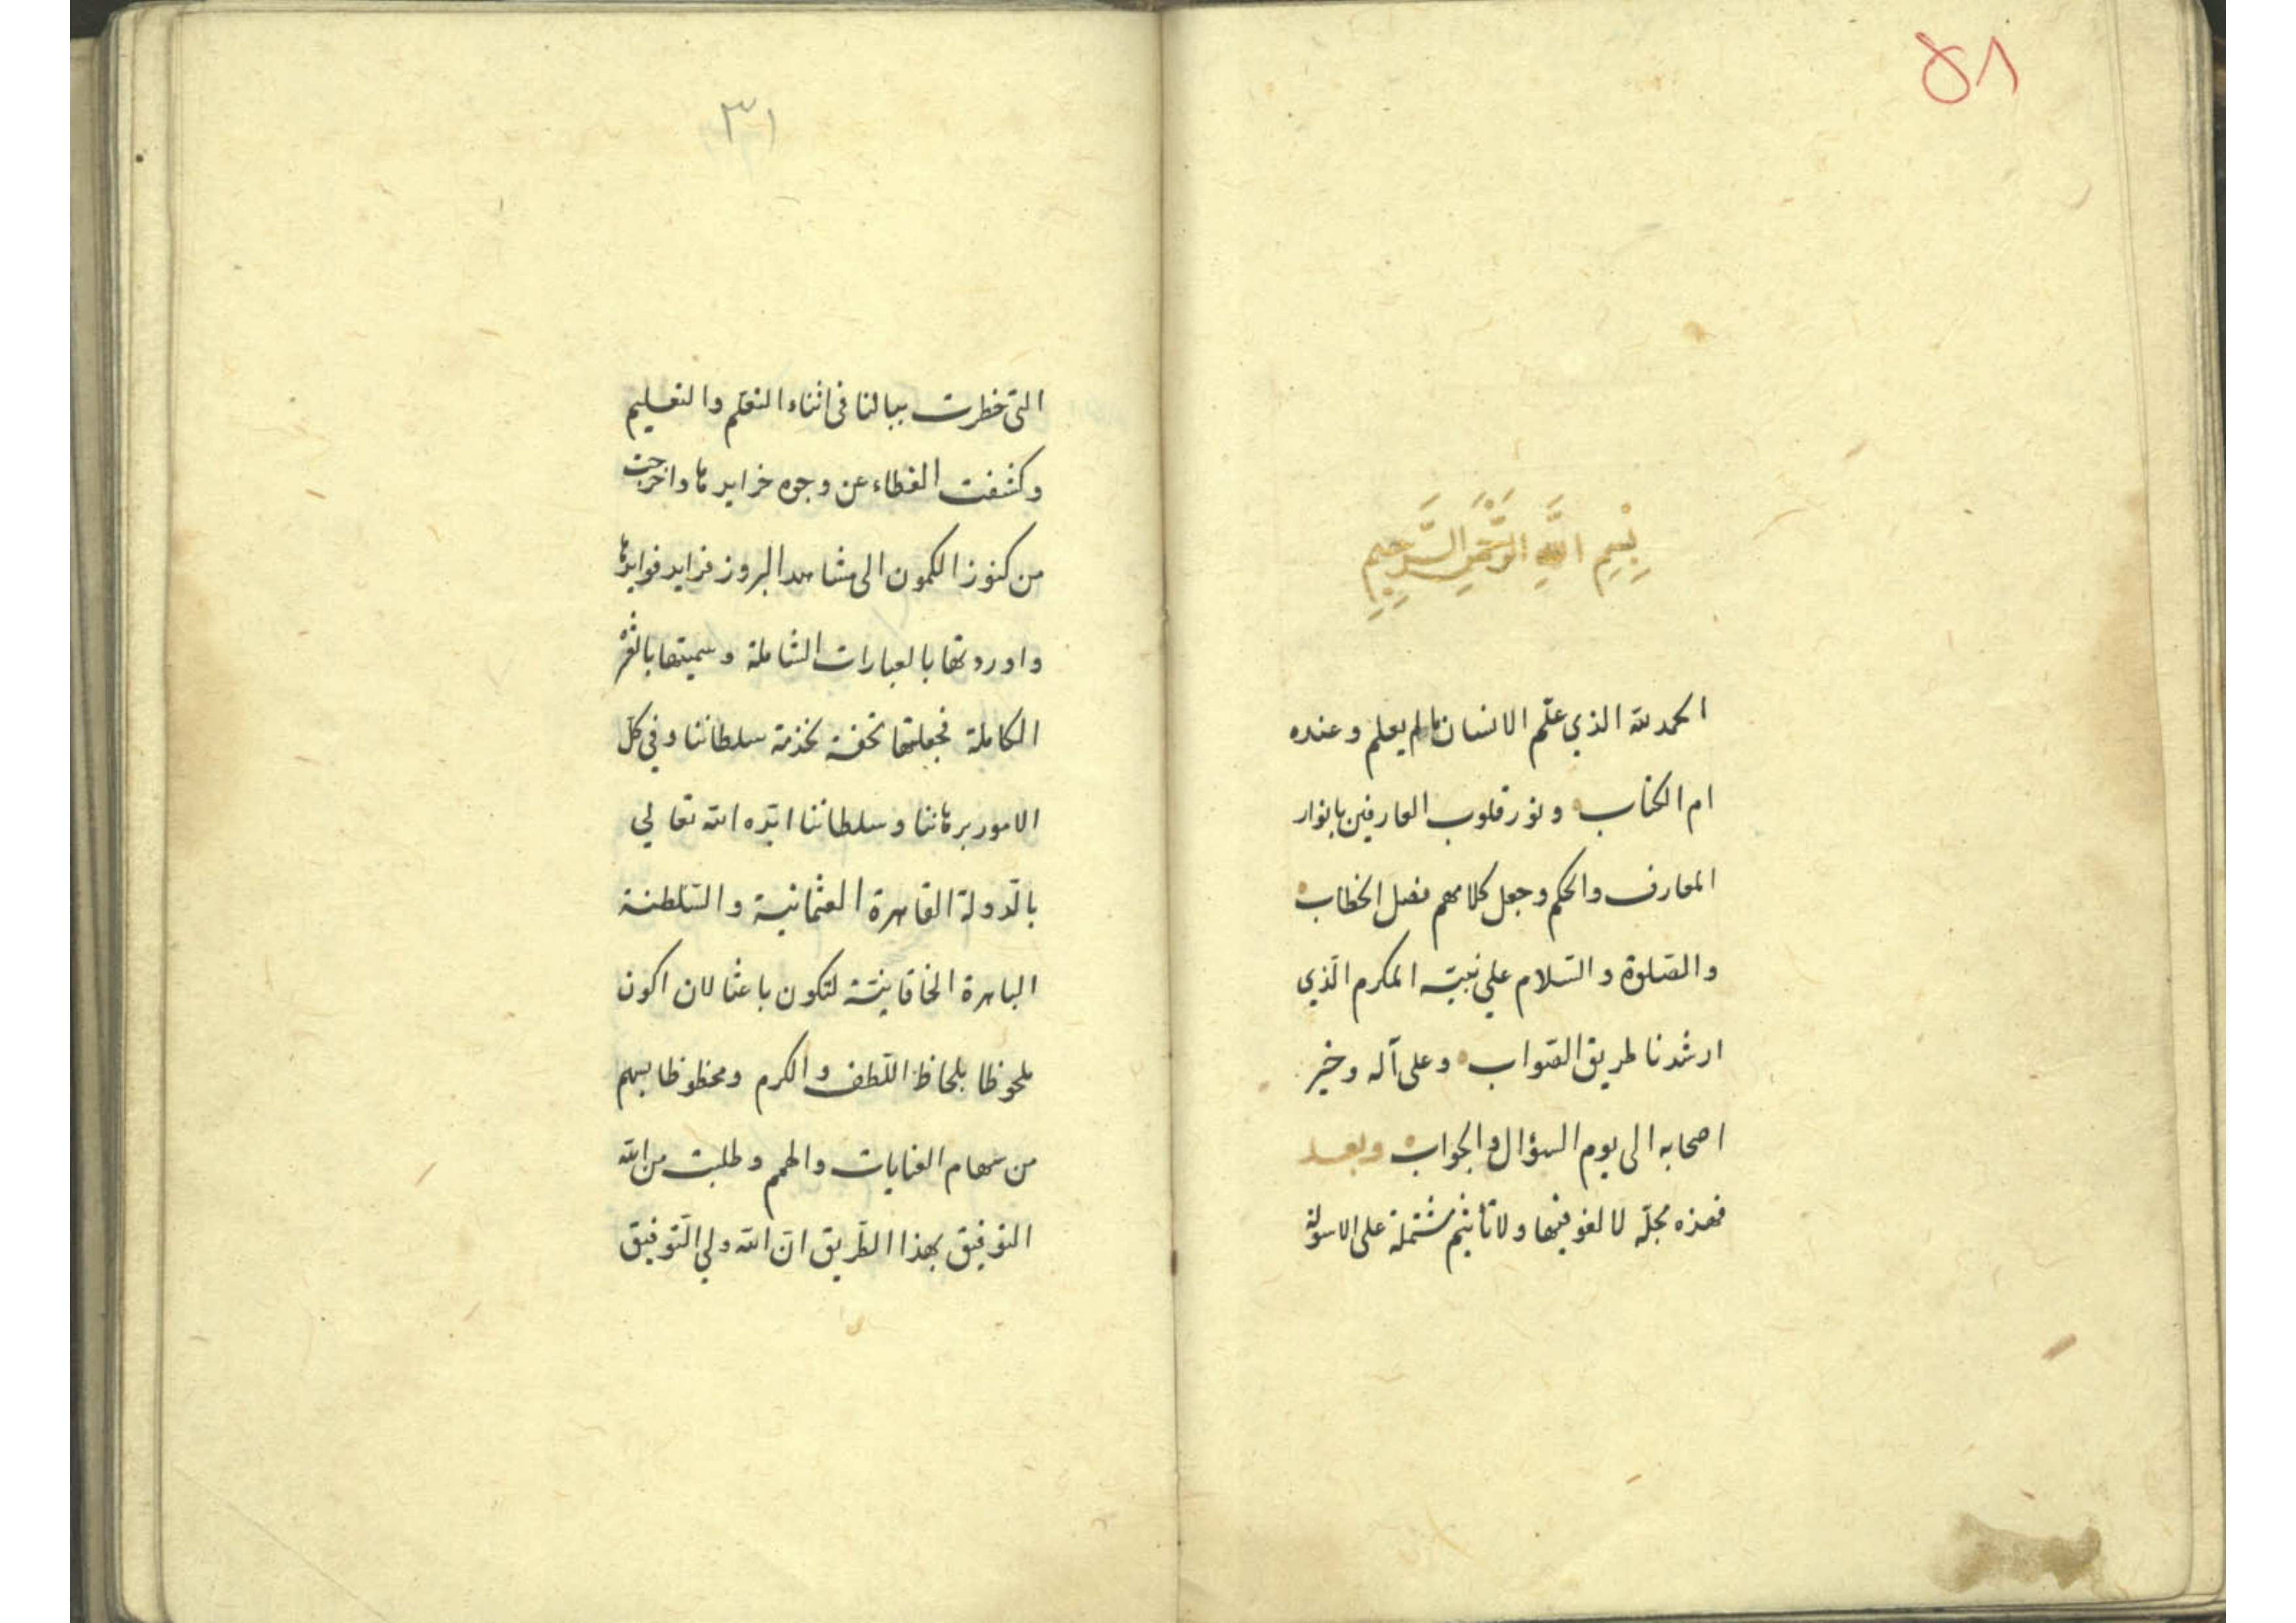 ٥٨
بِسْمِ اللَّهِ الرَّحْمَنِ الرَّحِيمِ
الحمد لله الذي علّم الانسان مالم يعلم وعنده
ام الكتاب ونور قلوب العارفين بانوار
المعارف والحكم وجعل كلامهم فصل الخطاب
والصّلوة والسّلام علي نبيّه المكرم الّذي
ارشدنا طريق الصّواب وعلى آله وخير
اصحابه الى يوم السؤال والجواب وبعد
فهذه مجلّه لا لغو فيها ولا تأثيم مشتملة على الاسولة
٣١
التي خطرت ببالنا في اثناء التعلّم والتعليم
وكشفت الغطاء عن وجوه خرايدها واخرجت
من كنوز الكمون الى مشاهد البروز فرايد فوايدها
واوردتها بالعبارات الشاملة وسميتها بالغرّه
الكاملة فجعلتها تحفة بخدمة سلطاننا وفي كلّ
الامور برهاننا وسلطاننا ايّده الله تعالي
بالدّولة القاهرة العثمانية والسّلطنة
الباهرة الخاقانيّة لتكون باعثا لان اكون
ملحوظا بلحاظ اللّطف والكرم ومحظوظا بسهم
من سهام العنايات والهمم وطلبت من الله
التوفيق بهذا الطّريق انّ الله ولي التّوفيق